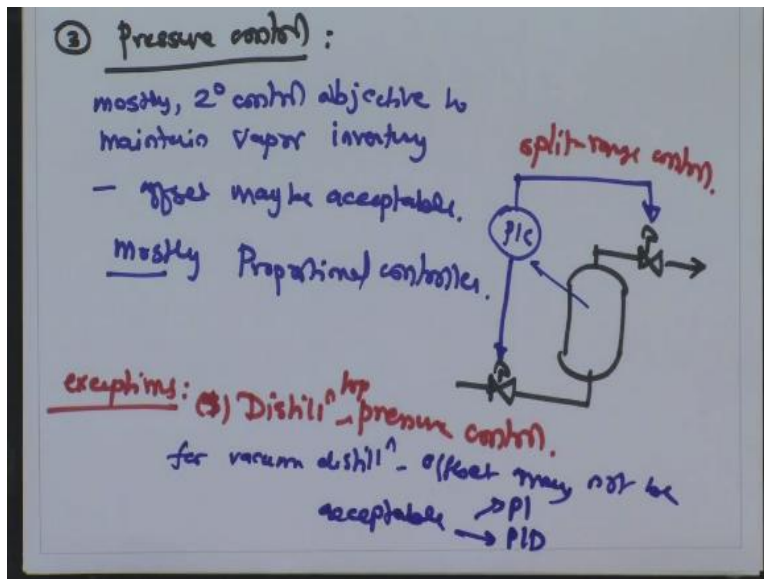 ③ Pressure control :
mostly, 2° control objective to
maintain vapor inventory
- offset may be acceptable.
mostly Proportional controller.
split-range control.
PIC
exceptions: ($) Distillⁿ top pressure control.
for vacuum distillⁿ - offset may not be
acceptable → PI
→ PID